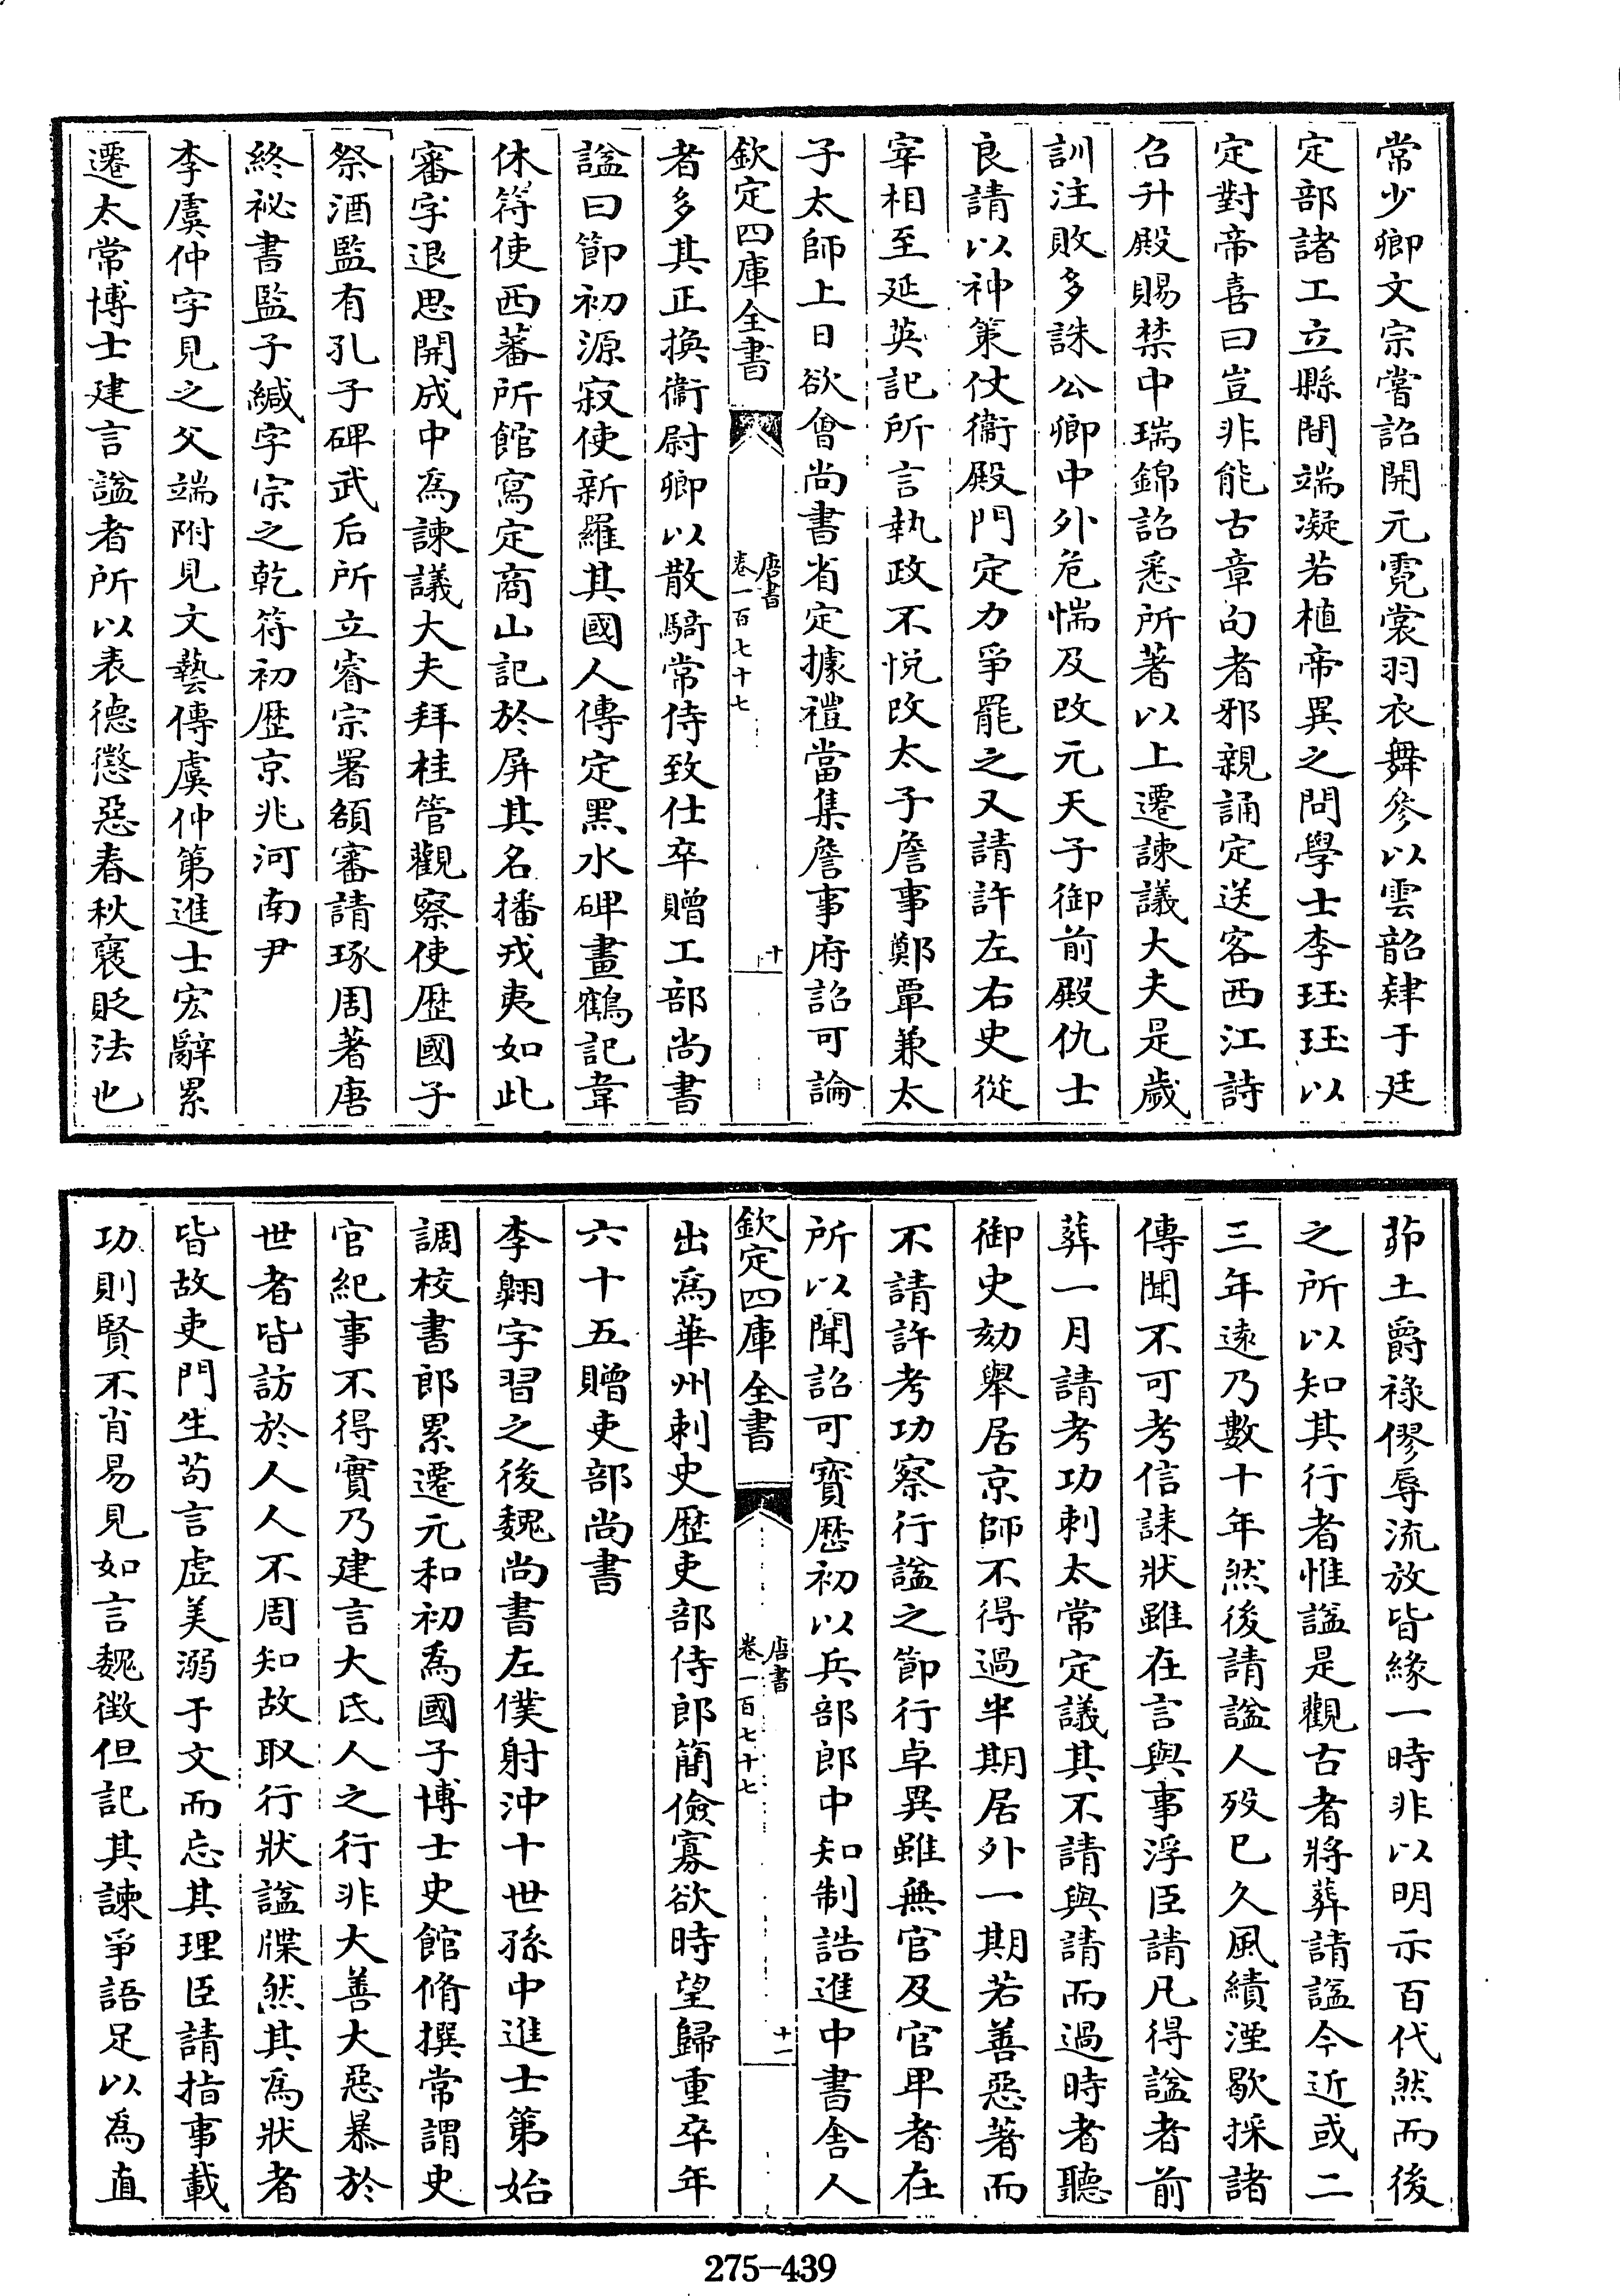 常少卿文宗嘗詔開元霓裳羽衣舞參以雲韶肄于廷
定部諸工立縣間端凝若植帝異之問學士李珏珏以
定對帝喜曰豈非能古章句者邪親誦定送客西江詩
召升殿賜禁中瑞錦詔悉所著以上遷諫議大夫是歲
訓注敗多誅公卿中外危惴及改元天子御前殿仇士
良請以神策仗衞殿門定力爭罷之又請許左右史從
宰相至延英記所言執政不悅改太子詹事鄭覃兼太
子太師上日欲會尚書省定據禮當集詹事府詔可論
欽定四庫全書
唐書
卷一百七十七
十
者多其正換衞尉卿以散騎常侍致仕卒贈工部尚書
諡曰節初源寂使新羅其國人傳定黑水碑畫鶴記韋
休符使西蕃所館寫定商山記於屏其名播戎夷如此
審字退思開成中為諫議大夫拜桂管觀察使歷國子
祭酒監有孔子碑武后所立睿宗署額審請琢周著唐
終祕書監子緘字宗之乾符初歷京兆河南尹
李虞仲字見之父端附見文藝傳虞仲第進士宏辭累
遷太常博士建言諡者所以表德懲惡春秋襃貶法也
茆土爵祿僇辱流放皆緣一時非以明示百代然而後
之所以知其行者惟諡是觀古者將葬請諡今近或二
三年遠乃數十年然後請諡人歿已久風績湮歇採諸
傳聞不可考信誄狀雖在言與事浮臣請凡得諡者前
葬一月請考功刺太常定議其不請與請而過時者聽
御史劾舉居京師不得過半期居外一期若善惡著而
不請許考功察行諡之節行卓異雖無官及官卑者在
所以聞詔可寳歷初以兵部郎中知制誥進中書舍人
欽定四庫全書
唐書
卷一百七十七
十一
出為華州刺史歷吏部侍郎簡儉寡欲時望歸重卒年
六十五贈吏部尚書
李翺字習之後魏尚書左僕射沖十世孫中進士第始
調校書郎累遷元和初為國子博士史館脩撰常謂史
官紀事不得實乃建言大氐人之行非大善大惡暴於
世者皆訪於人人不周知故取行狀諡牒然其為狀者
皆故吏門生苟言虛美溺于文而忘其理臣請指事載
功則賢不肖易見如言魏徵但記其諫爭語足以為直
275-439